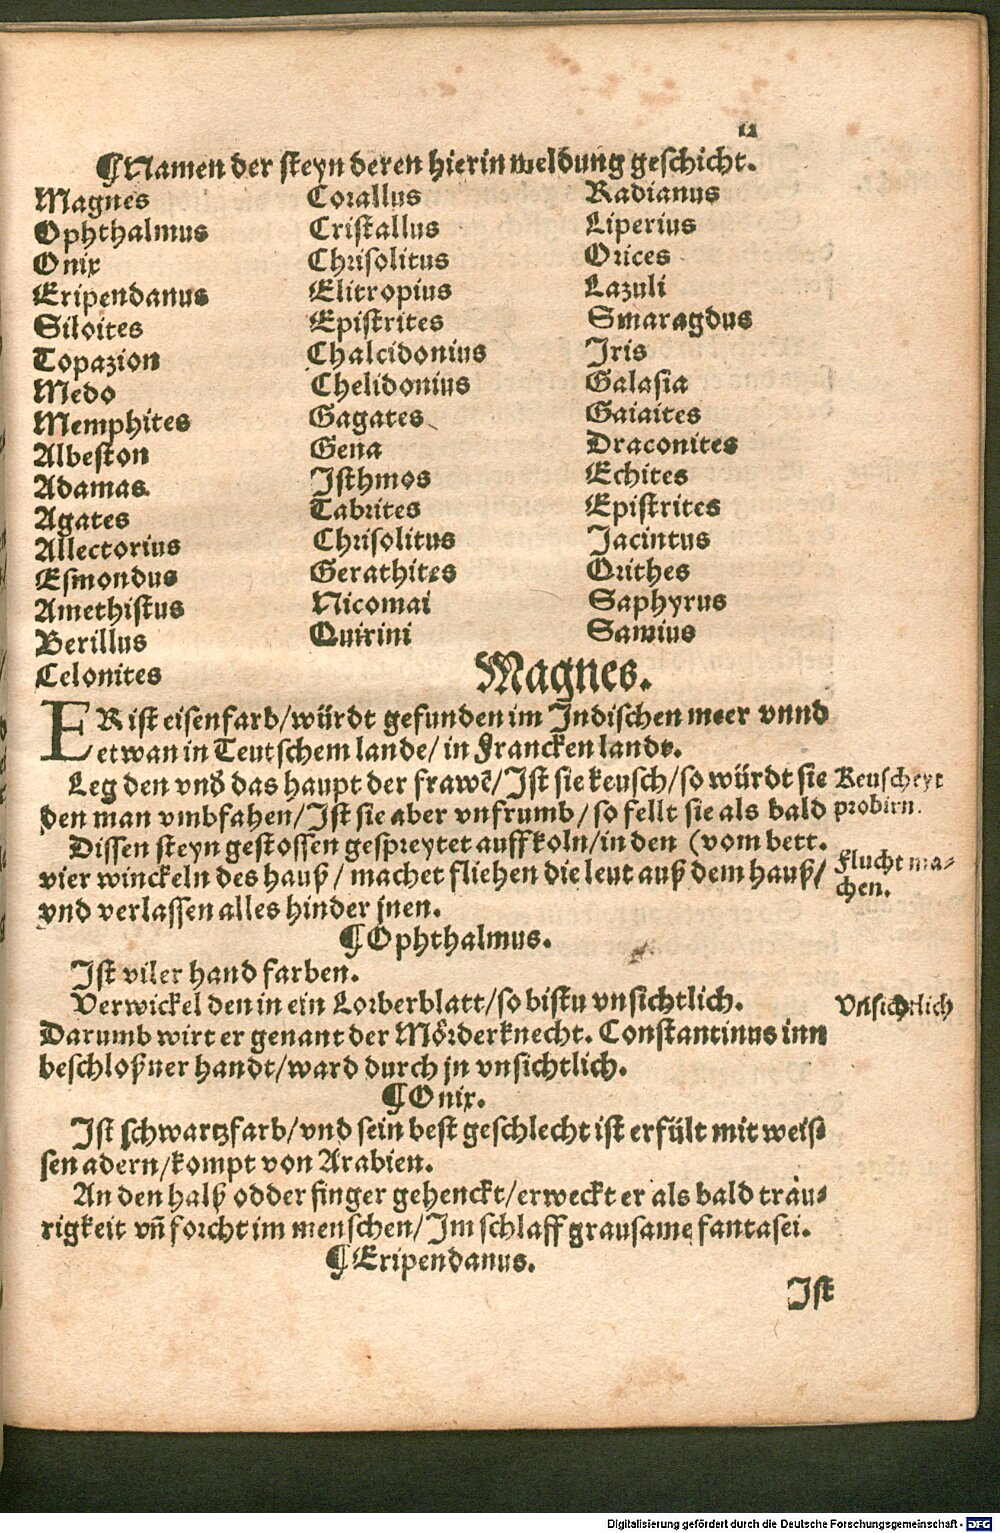 12
¶Namen der steyn deren hierin meldung geschicht.
Magnes
Ophthalmus
Onix
Eripendanus
Siloites
Topazion
Medo
Memphites
Albeston
Adamas.
Agates
Allectorius
Esmondus
Amethistus
Berillus
Celonites
Corallus
Cristallus
Chrisolitus
Elitropius
Epistrites
Chalcidonius
Chelidonius
Gagates
Gena
Isthmos
Tabrites
Chrisolitus
Gerathites
Nicomai
Quirini
Radianus
Liperius
Orices
Lazuli
Smaragdus
Iris
Galasia
Gaiaites
Draconites
Echites
Epistrites
Jacintus
Orithes
Saphyrus
Samius
Magnes.
ER ist eisenfarb/würdt gefunden im Indischen meer vnnd
etwan in Teutschem lande/in Francken lande.
Leg den vnd̄ das haupt der frawē/Ist sie keusch/so würdt sie
Keuscheyt
den man vmbfahen/Ist sie aber vnfrumb/so fellt sie als bald
probirn.
Dissen steyn gestossen gespreytet auff koln/in den (vom bett.
vier winckeln des hauß/machet fliehen die leut auß dem hauß/
Flucht ma-
chen.
vnd verlassen alles hinder jnen.
¶Ophthalmus.
Ist viler hand farben.
Verwickel den in ein Lorberblatt/so bistu vnsichtlich.
Vnsichtlich
Darumb wirt er genant der Mörderknecht. Constantinus inn
beschloßner handt/ward durch jn vnsichtlich.
¶Onix.
Ist schwartzfarb/vnd sein best geschlecht ist erfült mit weis-
sen adern/kompt von Arabien.
An den halß odder finger gehenckt/erweckt er als bald trau-
rigkeit vñ forcht im menschen/Im schlaff grausame fantasei.
¶Eripendanus.
Ist
Digitalisierung gefördert durch die Deutsche Forschungsgemeinschaft - DFG